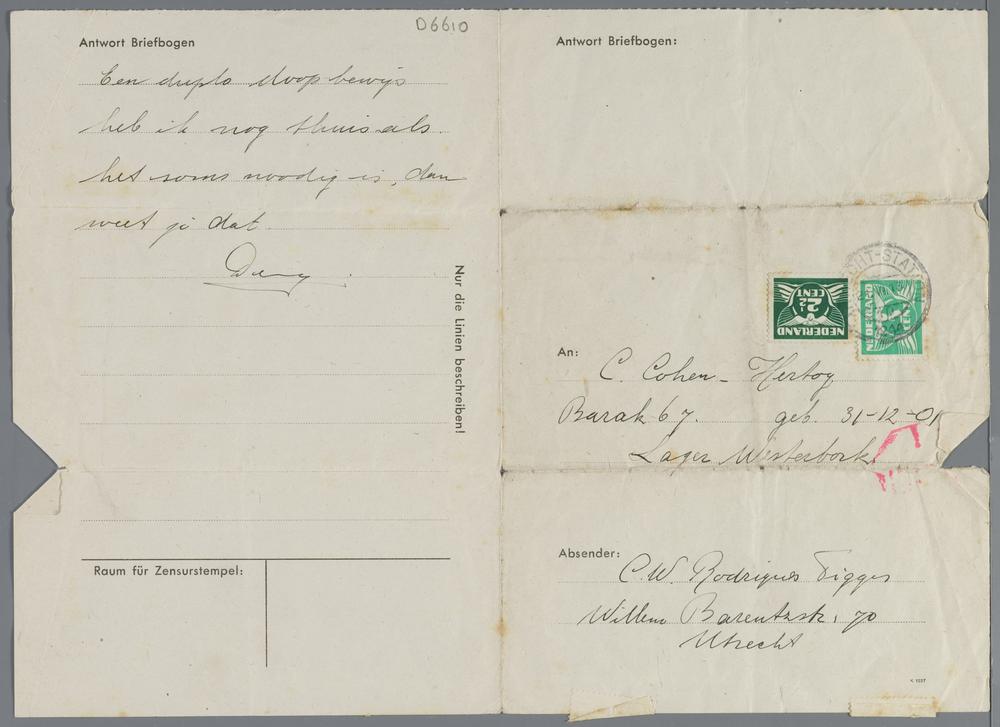 D6610
Antwort Briefbogen
Een duplo doopbewijs
heb ik nog thuis als
het soms noodig is, dan
weet je dat.
Nur die Linien beschreiben!
Raum für Zensurstempel:
Antwort Briefbogen:
2½
CENT
NEDERLAND
NEDERLAND
CENT
An:
C. Cohen - Hertog
Barak 67. geb. 31-12-01
Lager Westerbork
Absender:
C.W. Rodrigues
Willem Barentzstr. 70
Utrecht
K 1037